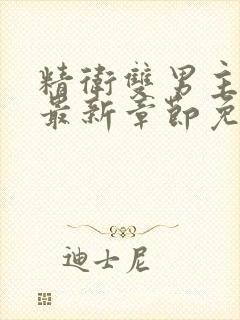 精衛雙男主
最新章節免
迪士尼